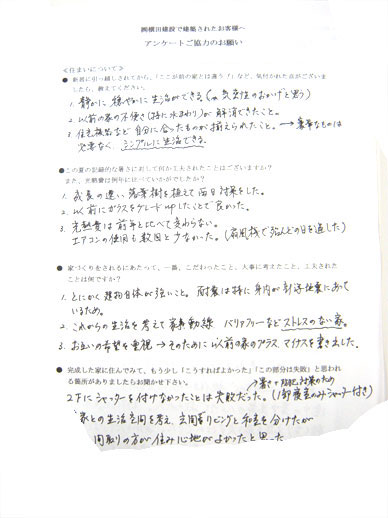 ㈱横田建設で建築されたお客様へ
アンケートご協力のお願い
≪住まいについて≫
● 新居に引っ越しされてから、「ここが前の家とは違う?」など、気付かれた点がございま
したら、教えてください。
1. 静かに 穏やかに生活ができる(高気密性のおかげと思う)
2. 以前の家の不便さ(特に水まわり)が解消できたこと。
3. 住宅設備など自分に合ったものが揃えられたこと。→ 豪華なものは
必要なく シンプルに生活できる。
●この夏の記録的な暑さに対して何か工夫されたことはございますか?
また、光熱費は例年に比べていかがでしたか?
1. 成長の速い落葉樹を植えて西日対策をした。
2. 以前にガラスをグレードupしたことで良かった。
3. 光熱費は前年と比べて変わらない。
エアコンの使用も数回と少なかった。(扇風機で殆んどの日を過した)
● 家づくりをされるにあたって、一番、こだわったこと、大事に考えたこと、工夫された
ことは何ですか?
1. とにかく建物自体が強いこと。耐震は特に身内が阪神地震にあって
いるため。
2. これからの生活を考えて家事動線 バリアフリーなどストレスのない家。
3. お互いの希望を重視 → そのために以前の家のプラス、マイナスを書き出した。
● 完成した家に住んでみて、もう少し「こうすればよかった」「この部分は失敗」と思われ
る箇所がありましたらお聞かせ下さい。
→ 暑さ+防犯対策のため
2Fにシャッターを付けなかったことは失敗だった。(1部寝室のみシャッター付き)
家との生活空間を考え 玄関からリビングと和室を分けたが
間取りの方が住み心地がよかったと思った